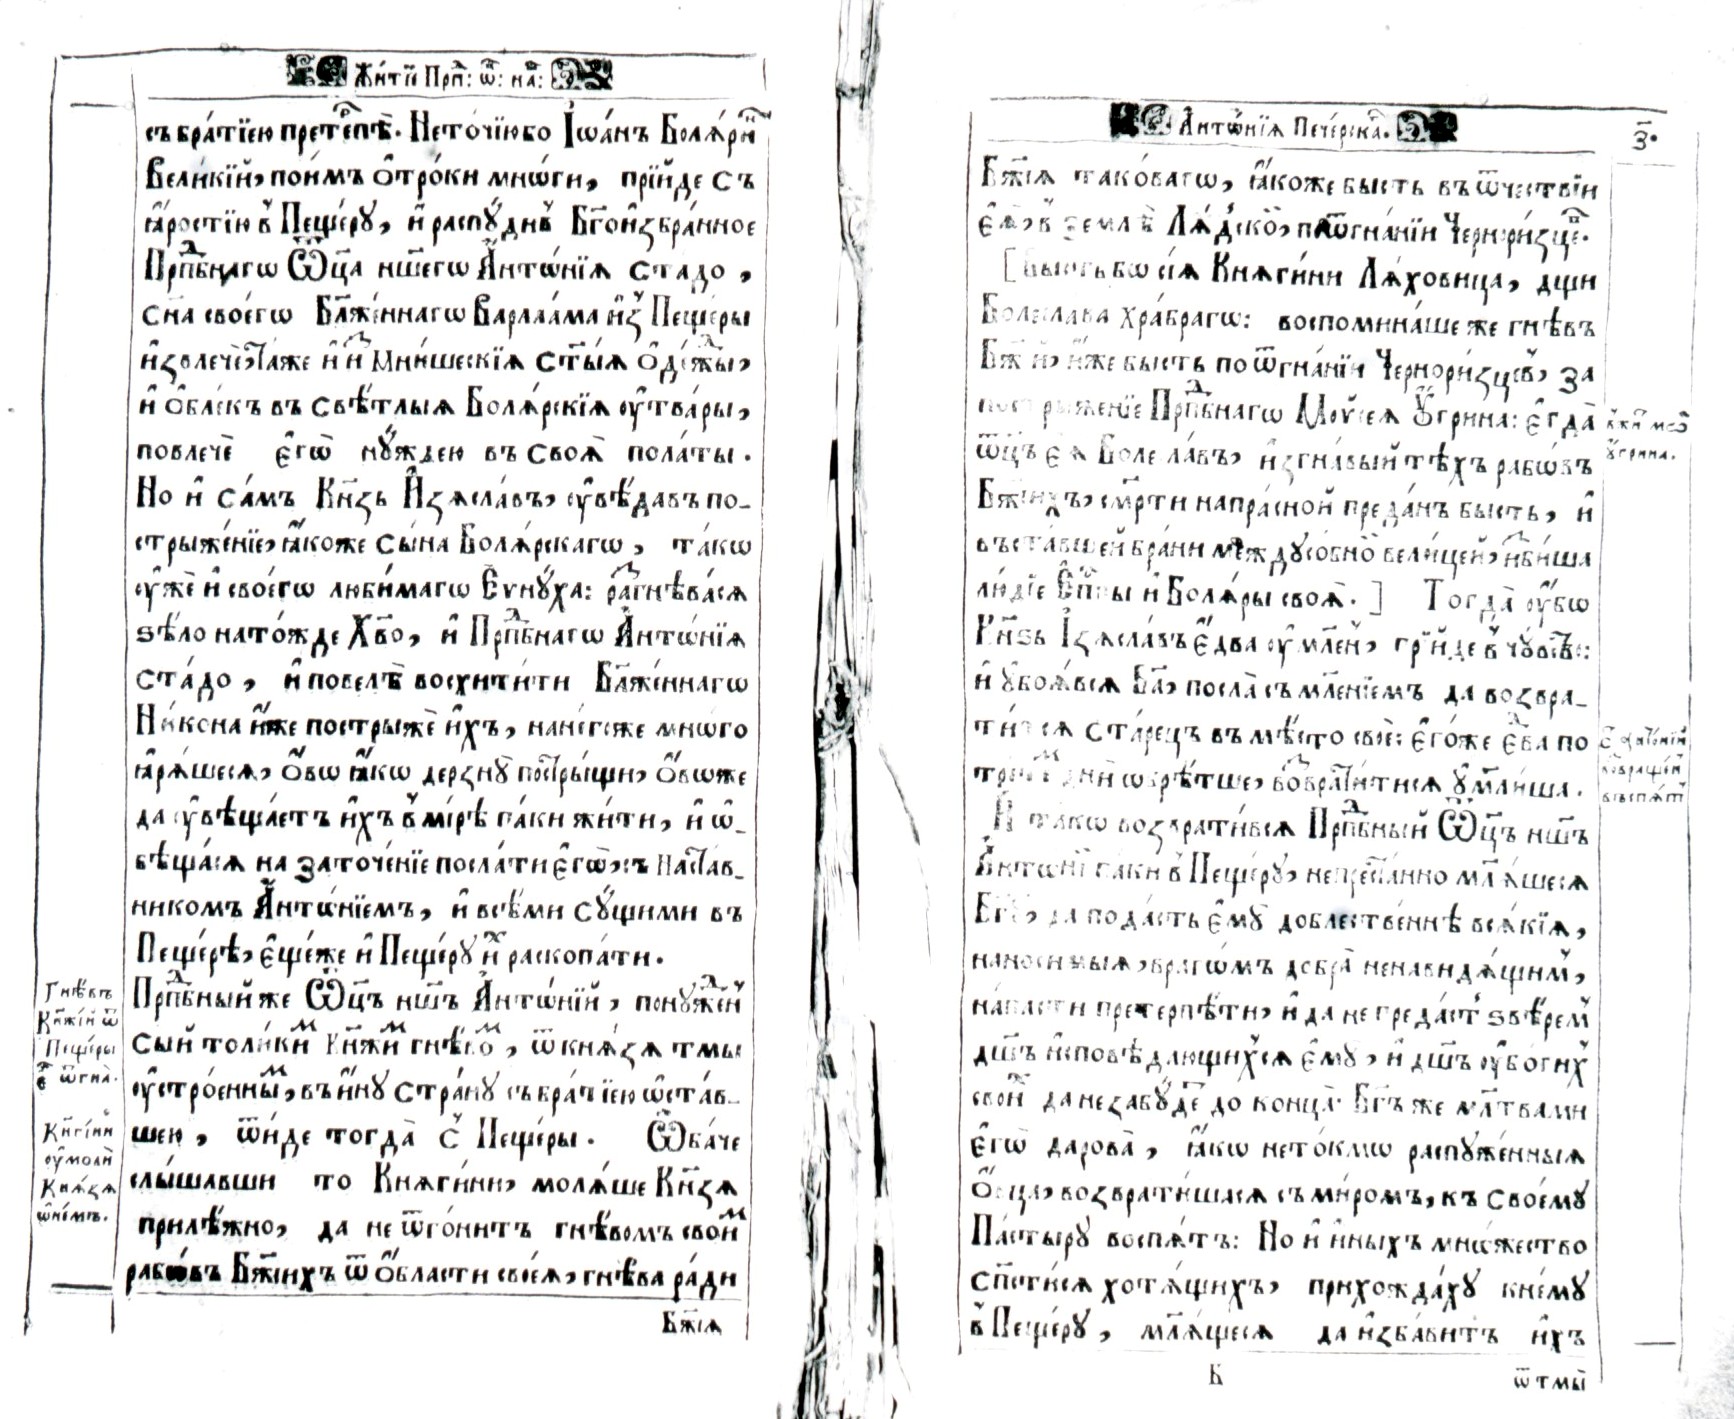 Житїе Прпⷣ: ѿ: нш҃:
съ бра́тїею претерпѣ̀. Нето́чїю бо І҆ѡа́нъ Боля́ринъ
Вели́кїй, пои́мъ о҆́троки мнѡ́ги, прїи́де съ
ꙗ҆́ростїю в̾ Пеще́рꙋ, и҆ распꙋ́днв̾ Бг҃ои́збра́нное
Прпⷣбнагѡ Ѿц҃а нш҃егѡ А҆нтѡ́нїѧ ста́до,
сн҃а своего̀ѡ Бл҃же́ннагѡ Варлаа́ма и҆з̾ Пеще́ры
и҆звлечѐ, та́же и҆ и҆з̾ Мни́шескїѧ ст҃ы́ѧ о҆де́жды,
и҆ о҆бле́къ въ свѣ́тлыѧ Болѧ́рскїѧ ᲂу҆тва́ры,
повлечѐ є҆гѡ̀ нꙋ́ждею въ своѧ̀ пола́ты.
Но и҆ са́мъ Кн҃зь И҆зѧсла́въ, ᲂу҆вѣ́давъ по-
стриже́нїе, ꙗ҆́коже сы́на Болѧ́рскагѡ, та́кѡ
ᲂу҆жѐ и҆ своегѡ̀ люби́магѡ Є҆ѵнꙋ́ха: разгнѣ́васѧ
ѕѣло̀ на то́жде Хв҃о, и҆ Прпⷣбнагѡ А҆нтѡ́нїѧ
ста́до, и҆ повелѣ̀ восхити́ти Бл҃же́ннагѡ
Ни́кона и҆́же пострижѐ и҆́хъ, на него́же мно́го
ꙗ҆рѧ́шесѧ, ѻ҆́вѡ ꙗ҆́кѡ дерзнꙋ̀ постри́щи, ѻ҆́вѡ же
да ᲂу҆вѣща́етъ и҆̀хъ в̾ мі́рѣ па́ки жи́ти, и҆ ѡ҆-
бѣща́сѧ на заточе́нїе посла́ти є҆гѡ̀, съ Наста́в-
никомъ А҆нтѡ́нїемъ, и҆ всѣ́ми сꙋ́щими въ
Пеще́рѣ, є҆ще́же и҆ Пеще́рꙋ и҆́хъ раскопа́ти.
Прпⷣбный же Ѿц҃ъ нш҃ъ А҆нтѡ́нїй, понꙋжде́нъ
сый толи́кимъ Кн҃жимъ гнѣ́вомъ, ѿ кнѧ́зѧ тмы
ᲂу҆стро́еннымъ, въ и҆́нꙋ странꙋ̀ съ бра́тїею ѡ҆ста́в-
шею, ѿи́де тогда̀ с̾ Пеще́ры. Ѻ҆ба́че
слы́шавши то Кнѧги́ни, молѧ́ше Кн҃зѧ
прилѣ́жно, да не ѿго́нитъ гнѣ́вомъ свои́мъ
рабѡ́въ Бж҃іихъ ѿ о҆́бласти своеѧ̀, гнѣ́ва ра́ди
Бж҃іѧ
Гнѣ́въ
Кн҃жїй ѿ
Пеще́ры
є҆ ѿгна̀.
Кн҃ги́ни
ᲂу҆молѝ
Кнѧ́зѧ
ѡ҆ не́мъ.
А҆нтѡ́нїѧ Пече́рскаⷢ.
з҃.
Бж҃іѧ таково́вагѡ, ꙗ҆́коже бысть въ ѿе́чествїи
є҆ѧ̀, в̾ землѣ̀ Лѧ́дской, по ѿгна́нїи Черноризцевъ.
[Бысть бо сїѧ Кнѧги́ни Лѧ́ховица, дщи
Болесла́ва хра́брагѡ: воспомина́ше же гнѣ́въ
Бж҃їй, и҆́же бысть по ѿгна́нїи Черноризцевъ, за
постриже́нїе Прпⷣбнагѡ Мѡѷсеѧ Оу҆́грина: є҆гда̀
ѻ҆ц҃ъ є҆ѧ̀ Болесла́въ, и҆згна́вый тѣ́хъ рабѡ́въ
Бж҃іихъ, сме́рти напра́сной преда́нъ бысть, и҆
въста́вшей бра́ни междꙋсо́бно вели́цей, и҆зби́ша
лю́дїе Є҆пⷭ҇пы и҆ Болѧ́ры своѧ̀.] Тогда̀ ᲂу҆́бѡ
Кн҃зь І҆зѧсла́въ є҆два̀ ᲂу҆моле́нъ, прїи́де в̾ чꙋ́вство:
и҆ ᲂу҆боѧ́всѧ Бг҃а, посла̀ съ моле́нїемъ да возвра-
ти́тсѧ ста́рецъ въ мѣ́сто своѐ: є҆го́же є҆два̀ по
трїе́хъ дни́ ѡ҆брѣ́тше, возврати́тисѧ ᲂу҆моли́ша.
И҆ та́кѡ возврати́всѧ Прпⷣбный Ѿц҃ъ нш҃ъ
А҆нтѡ́нїй па́ки в̾ Пеще́рꙋ, непреста́нно молѧ́шесѧ
Бг҃ꙋ, да пода́стъ є҆мꙋ̀ до́блественнѣ всѧ́кїѧ,
наноси́мыѧ, враго́мъ добра̀ ненави́дѧщимъ,
напа́сти претерпѣ́ти, и҆ да не преда́стъ ѕвѣре́мъ
дш҃ъ и҆сповѣ́дающихсѧ є҆мꙋ̀, и҆ дш҃ъ ᲂу҆бо́гихъ
свои́хъ да не забꙋ́детъ до конца̀. Бг҃ъ же мл҃твами
є҆гѡ̀ дарова̀, ꙗ҆́кѡ нето́кмѡ распꙋже́нныѧ
ѻ҆́вца, возврати́шасѧ съ ми́ромъ, къ своемꙋ̀
Па́стырꙋ воспѧ́тъ: Но и҆ и҆ны́хъ мно́жество
сп҃сти́сѧ хотѧ́щихъ, прихожда́хꙋ к немꙋ̀
в̾ Пеще́рꙋ, молѧ́щесѧ да и҆зба́витъ и҆̀хъ
Б
ѿ тмы̀
ᲂу҆́грина.
воспѧ́ть